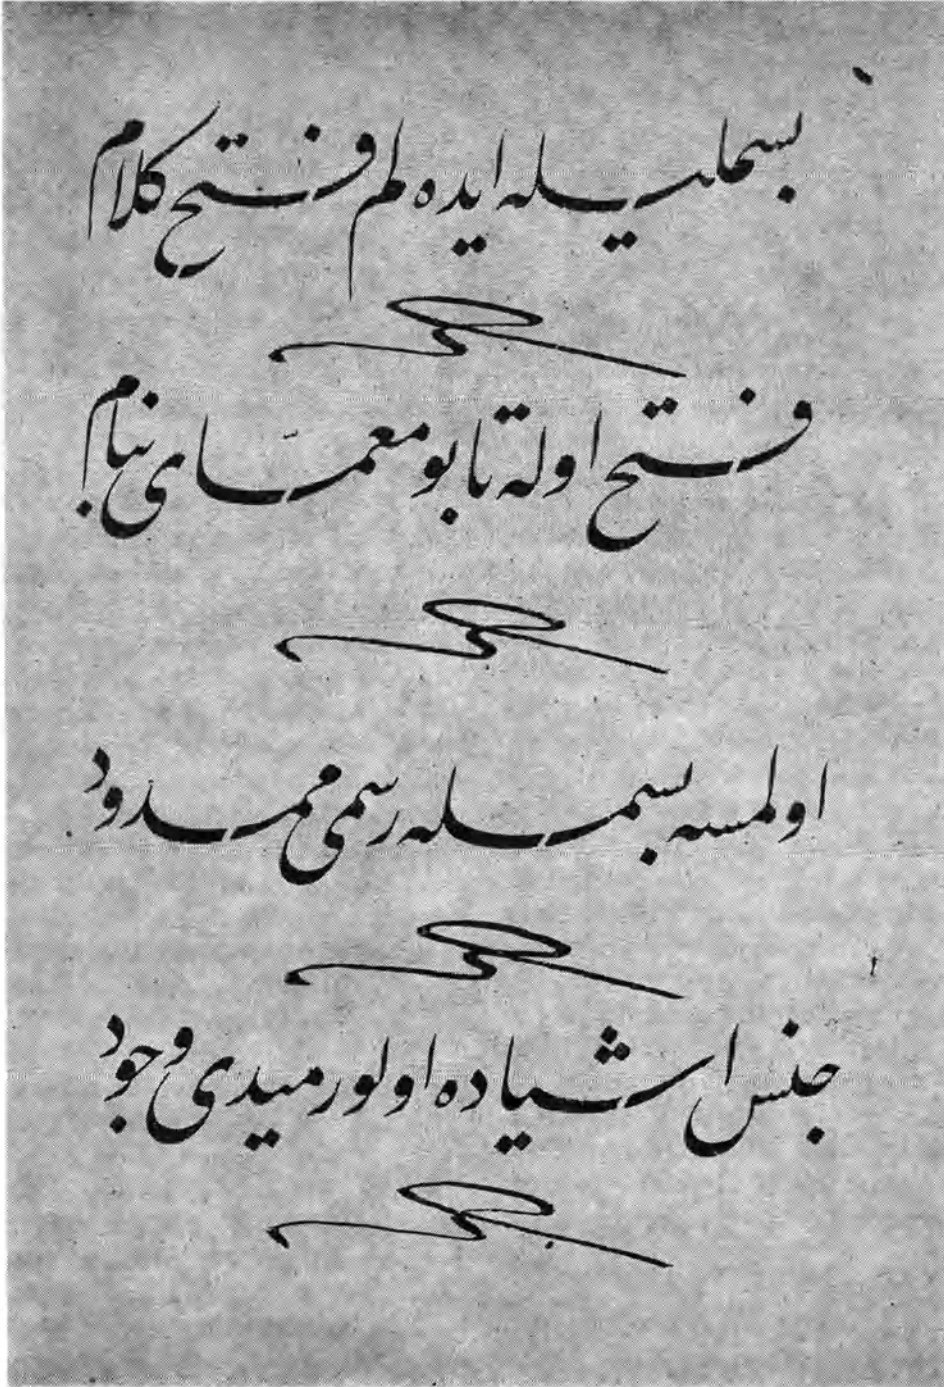 بسملیله ایده لم فتح کلام
فتح اوله تا بو معمّای بنام
اولمسه بسمله رسمی ممدود
جنس اشیاده اولور میدی وجود